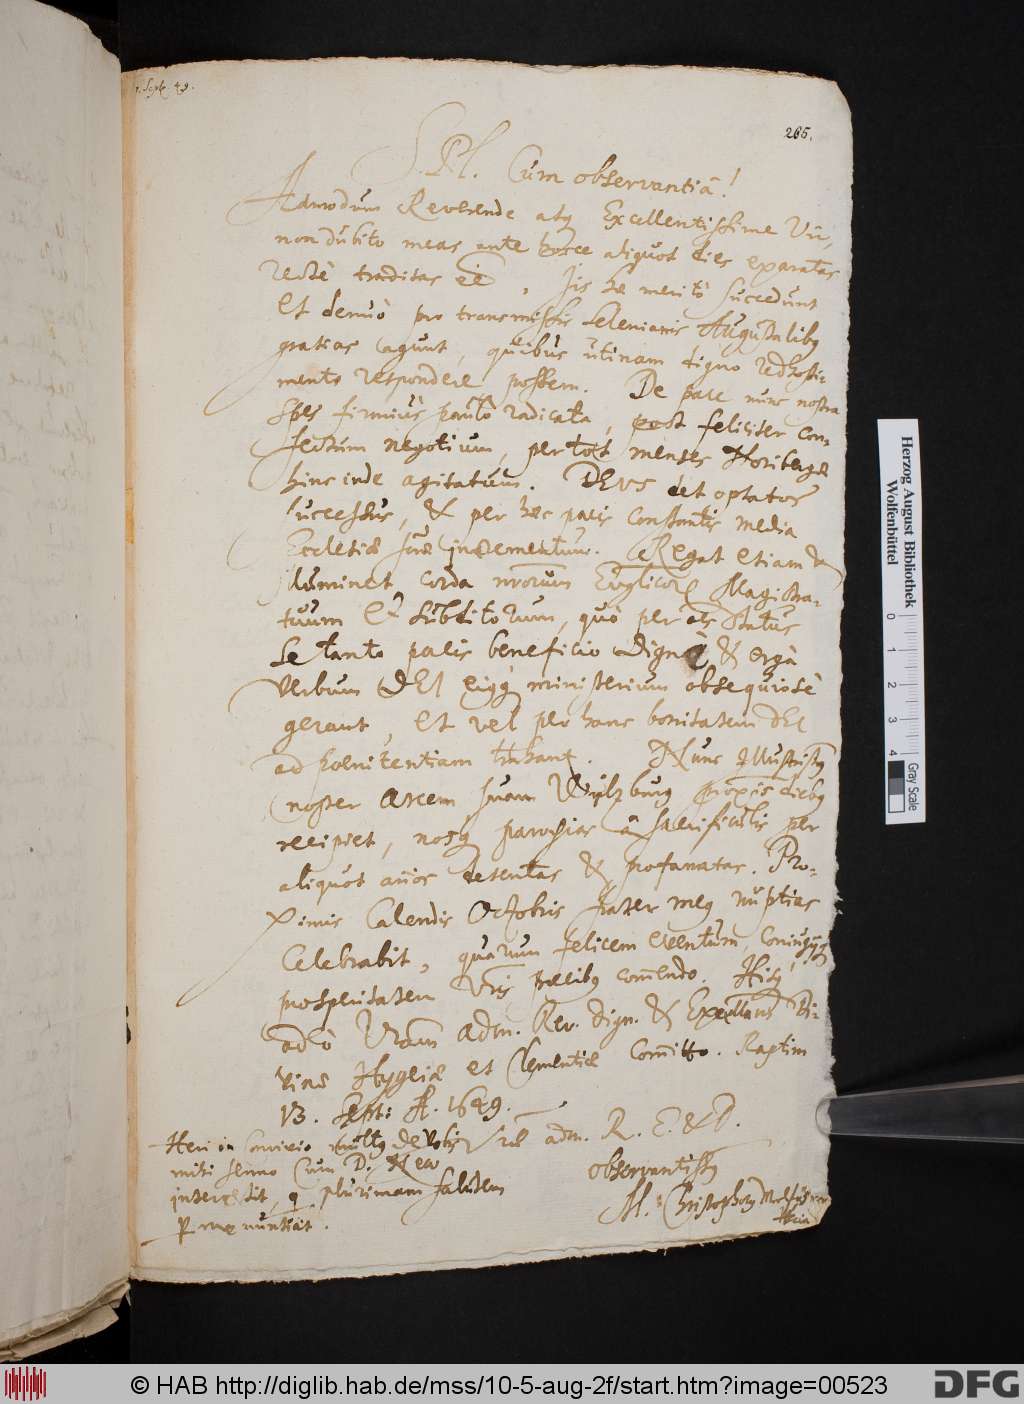 Sept. 49.
265.
S. P. Cum observantiâ!
Admodum Reverende atq Excellentissime Vir,
non dubito meas ante hosce aliquot dies exaratas
rectè traditas eē, Jis hae meritò succedunt
et denuò pro transmissis Selenianis Augustalibq
gratias agunt, quibus ùtinam digno redhosti-
mento respondere possem. De pace nunc nostra
spes firmiùs paulò radicata, post feliciter con-
fectum negotium, per tot menses Noribergae
hinc inde agitatum. DEUS det optatos
successus, & per haec pacis constantis media
Ecclesiae suae incrementum. Regat etiam &
illuminet corda nrorum Magistra-
tuum et subditorum, quò per
se tanto pacis beneficio dignè & ergà
verbum DEI eiqq ministerium obsequiosè
gerant, et vel per hanc bonitatem DEI
ad poenitentiam trahant. Nunc Illustrissq
noster arcem suam Wyltzburg proxis diebq
recipiet, nosq parochias â sacrificulis per
aliquot anos detentas & profanatas. Pro-
ximis Calendis Octobris frater meq nuptias
Celebrabit, quarum felicem eventum,
prosperitatem Vris precibq comendo. Hisq
adm. Rev. dign. & Di-
vinae Hygeiae et Clementiae Comitto. Raptim
13. Sept: A. 1649.
Heri in Convivio multq de Vobis
mihi sermo Cum D.
intercessit, q plurimam salutem
p me nuntiat.
adm. R. E. & D.
observantissq
M. Christophorq
© HAB http://diglib.hab.de/mss/10-5-aug-2f/start.htm?image=00523
DFG
Herzog August Bibliothek
Wolfenbüttel
0 1 2 3 4
Gray Scale